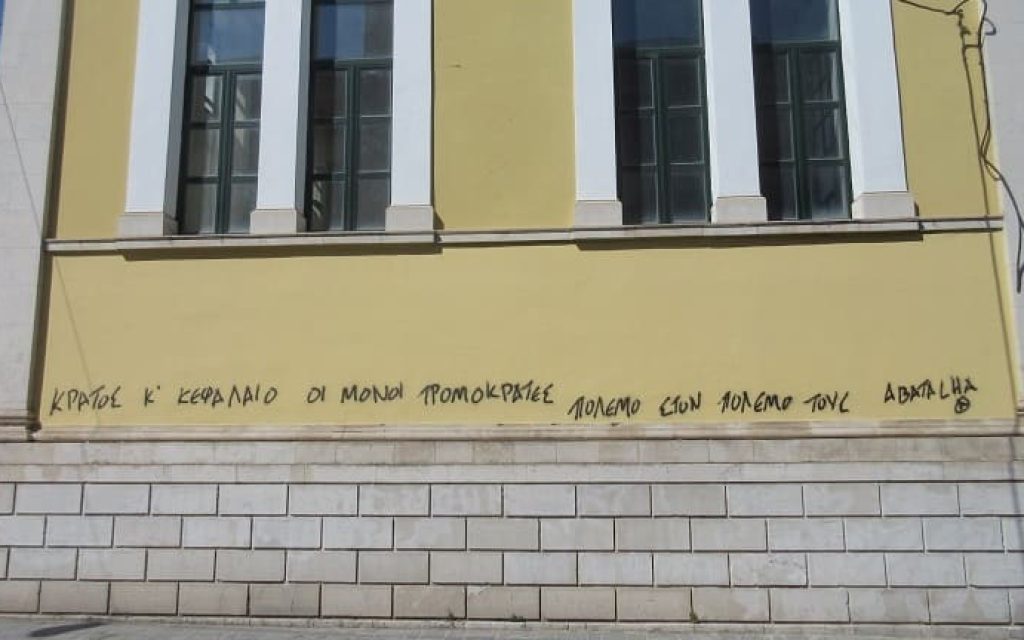 ΚΡΑΤΟΣ Κ' ΚΕΦΑΛΑΙΟ ΟΙ ΜΟΝΟΙ ΤΡΟΜΟΚΡΑΤΕΣ ΠΟΛΕΜΟ ΣΤΟΝ ΠΟΛΕΜΟ ΤΟΥΣ